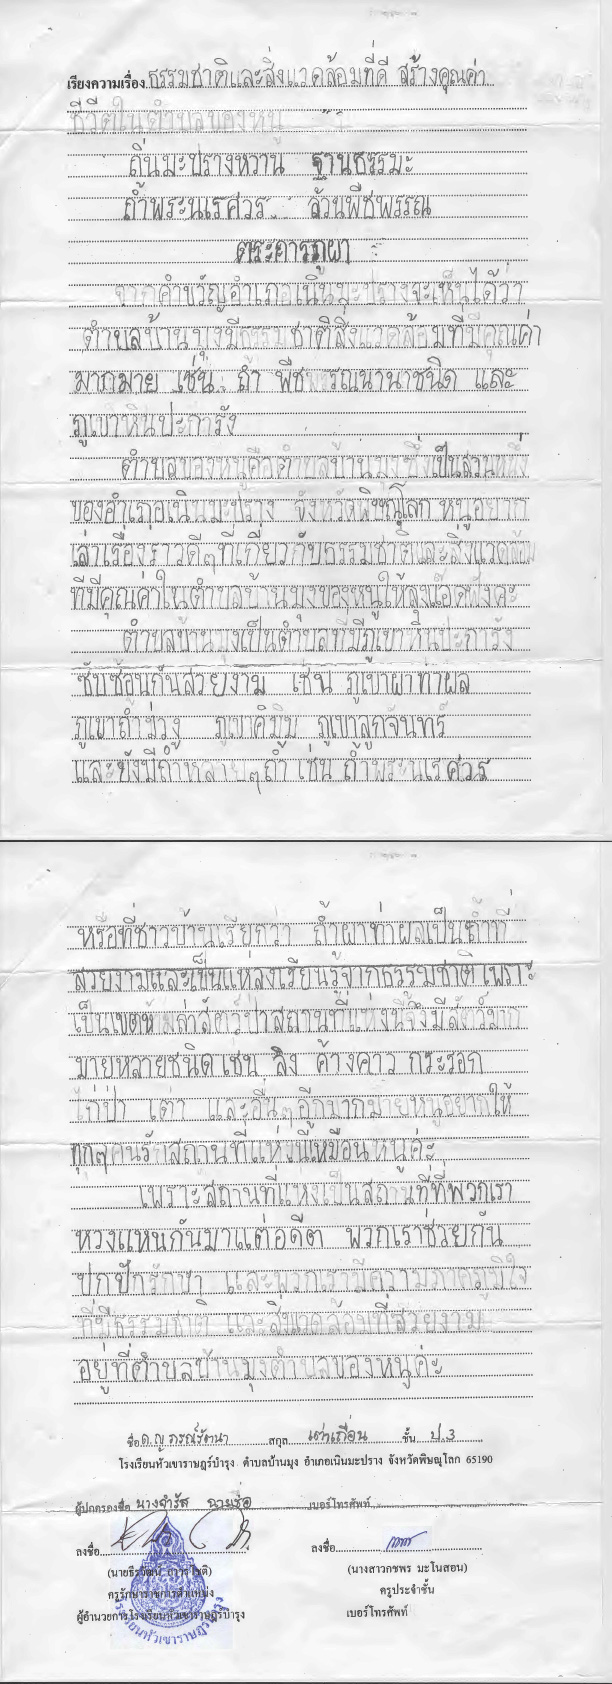 เรียงความเรื่อง ธรรมชาติและสิ่งแวดล้อมที่ดี สร้างคุณค่า
ชีวิตในตำบลของหนู
ถิ่นมะปรางหวาน ฐานธรรมะ
ถ้ำพระนเรศวร ล้วนพืชพรรณ
ตระการภูผา
จากคำขวัญอำเภอเนินมะปรางจะเห็นได้ว่า
ตำบลบ้านมุงมีธรรมชาติสิ่งแวดล้อมที่มีคุณค่า
มากมาย เช่น ถ้ำ พืชพรรณนานาชนิด และ
ภูเขาหินปะการัง
ตำบลของหนูคือตำบลบ้านมุงซึ่งเป็นส่วนหนึ่ง
ของอำเภอเนินมะปราง จังหวัดพิษณุโลก หนูอยาก
เล่าเรื่องราวดีๆที่เกี่ยวกับธรรมชาติและสิ่งแวดล้อม
ที่มีคุณค่าในตำบลบ้านมุงของหนูให้ฟังค่ะ
ตำบลบ้านมุงเป็นตำบลที่มีภูเขาหินปะการัง
ซับซ้อนกันสวยงาม เช่น ภูเขาผาท่าผล
ภูเขาถ้ำม่วง ภูเขาลูกจันทร์
และยังมีถ้ำหลายๆถ้ำ เช่น ถ้ำพระนเรศวร
หรือที่ชาวบ้านเรียกว่า ถ้ำผาท่าผลเป็นถ้ำที่
สวยงามและเป็นแหล่งเรียนรู้จากธรรมชาติ เพราะ
เป็นเขตห้ามล่าสัตว์ป่าสถานที่แห่งนี้จึงมีสัตว์มาก
มายหลายชนิด เช่น ลิง ค้างคาว กระรอก
ไก่ป่า เต่า และอื่นๆอีกมากมายหนูอยากให้
ทุกๆคนรักสถานที่แห่งนี้เหมือนหนูค่ะ
เพราะสถานที่แห่งเป็นสถานที่ที่พวกเรา
หวงแหนกันมาแต่อดีต พวกเราช่วยกัน
ปกปักรักษา และพวกเรามีความภาคภูมิใจ
ที่มีธรรมชาติ และสิ่งแวดล้อมที่สวยงาม
อยู่ที่ตำบลบ้านมุงตำบลของหนูค่ะ
ชื่อ ด.ญ. ภรณ์รัตนา สกุล เต่าเถื่อน ชั้น ป.3
โรงเรียนหัวเขาราษฎร์บำรุง ตำบลบ้านมุง อำเภอเนินมะปราง จังหวัดพิษณุโลก 65190
ผู้ปกครองชื่อ นางจำรัส เบอร์โทรศัพท์
ลงชื่อ ลงชื่อ
(นางสาวกชพร มะโนสอน)
ครูรักษาราชการตำแหน่ง ครูประจำชั้น
ผู้อำนวยการโรงเรียนหัวเขาราษฎร์บำรุง เบอร์โทรศัพท์
โรงเรียนหัวเขาราษฎร์บำรุง